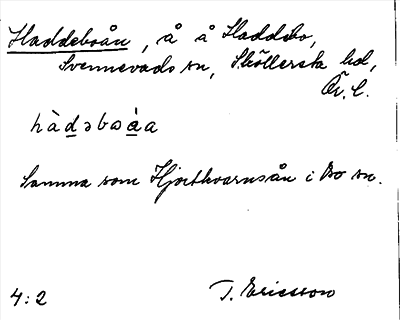 Haddeboån, å å Haddebo,
Svennevads sn, Sköllersta hd,
Ör. l.
hàdəboàa
Samma som Hjortkvarnsån i Bo sn.
4:2 T. Ericsson